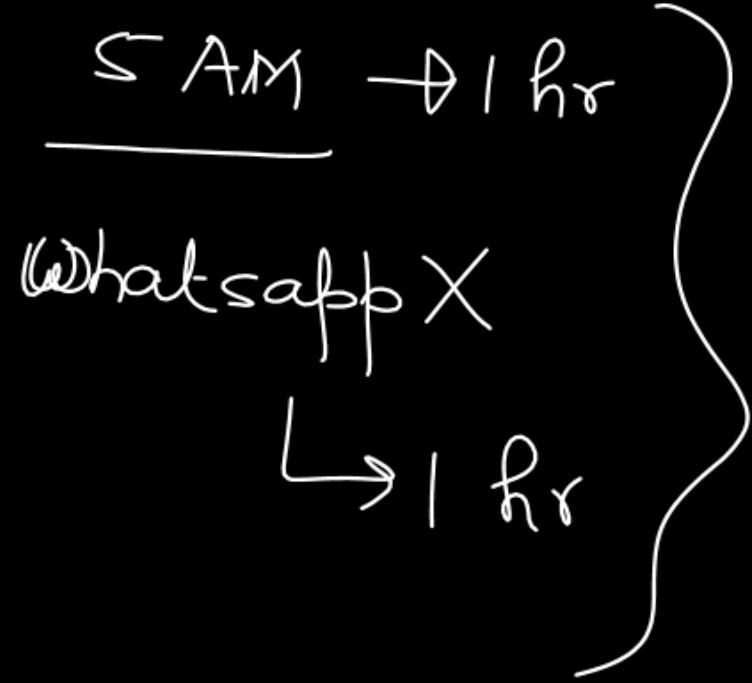 5 AM → 1 hr
Whatsapp X
↳ 1 hr